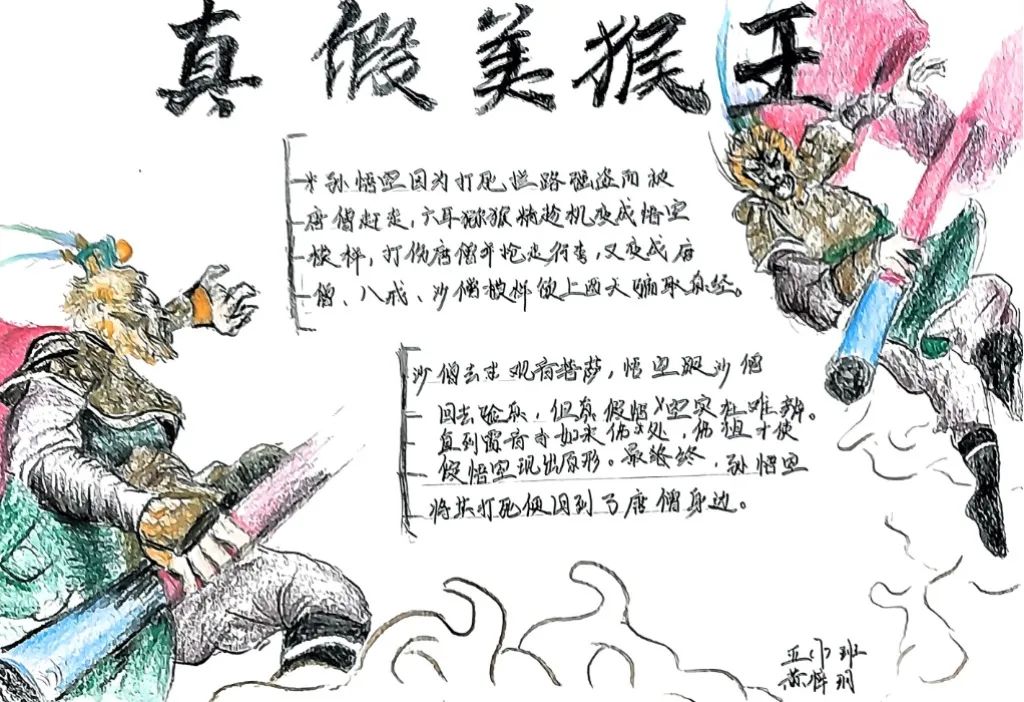 真假美猴王
孙悟空因为打死拦路强盗而被
唐僧赶走，六耳猕猴精趁机变成悟空
模样，打伤唐僧并抢走行李，又变成唐
僧、八戒、沙僧模样欲上西天骗取真经。
沙僧去求观音菩萨，悟空跟沙僧
回去验真，但真假悟空实在难辨。
直到雷音寺如来佛处，佛祖才使
假悟空现出原形。最终，孙悟空
将其打死便回到了唐僧身边。
班